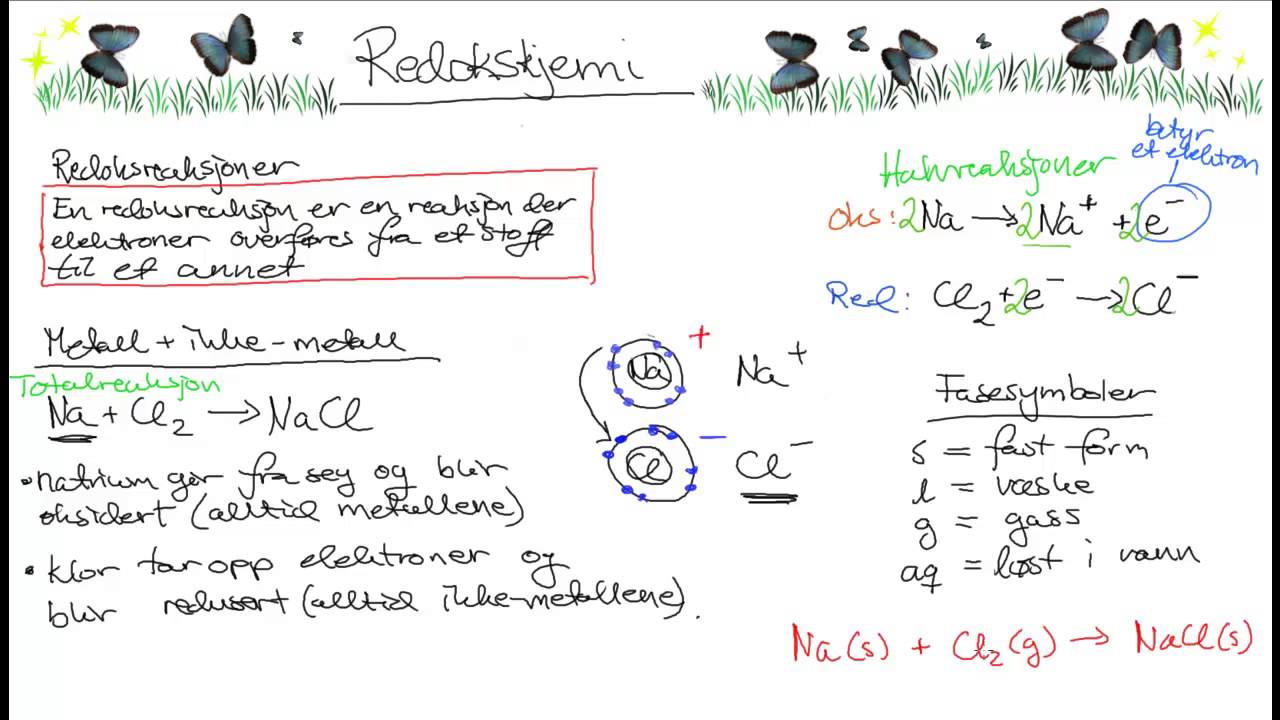 Redokskjemi
Redoksreaksjoner
En redoksreaksjon er en reaksjon der
elektroner overføres fra et stoff
til et annet
Metall + ikke-metall
Totalreaksjon
Na + Cl₂ → NaCl
• natrium gir fra seg og blir
oksidert (alltid metallene)
• klor tar opp elektroner og
blir redusert (alltid ikke-metallene).
Na + Na⁺
Cl – Cl⁻
betyr
et elektron
Halvreaksjoner
oks: 2Na → 2Na⁺ + 2e⁻
Red: Cl₂ + 2e⁻ → 2Cl⁻
Fasesymboler
s = fast form
l = væske
g = gass
aq = løst i vann
Na(s) + Cl₂(g) → NaCl(s)